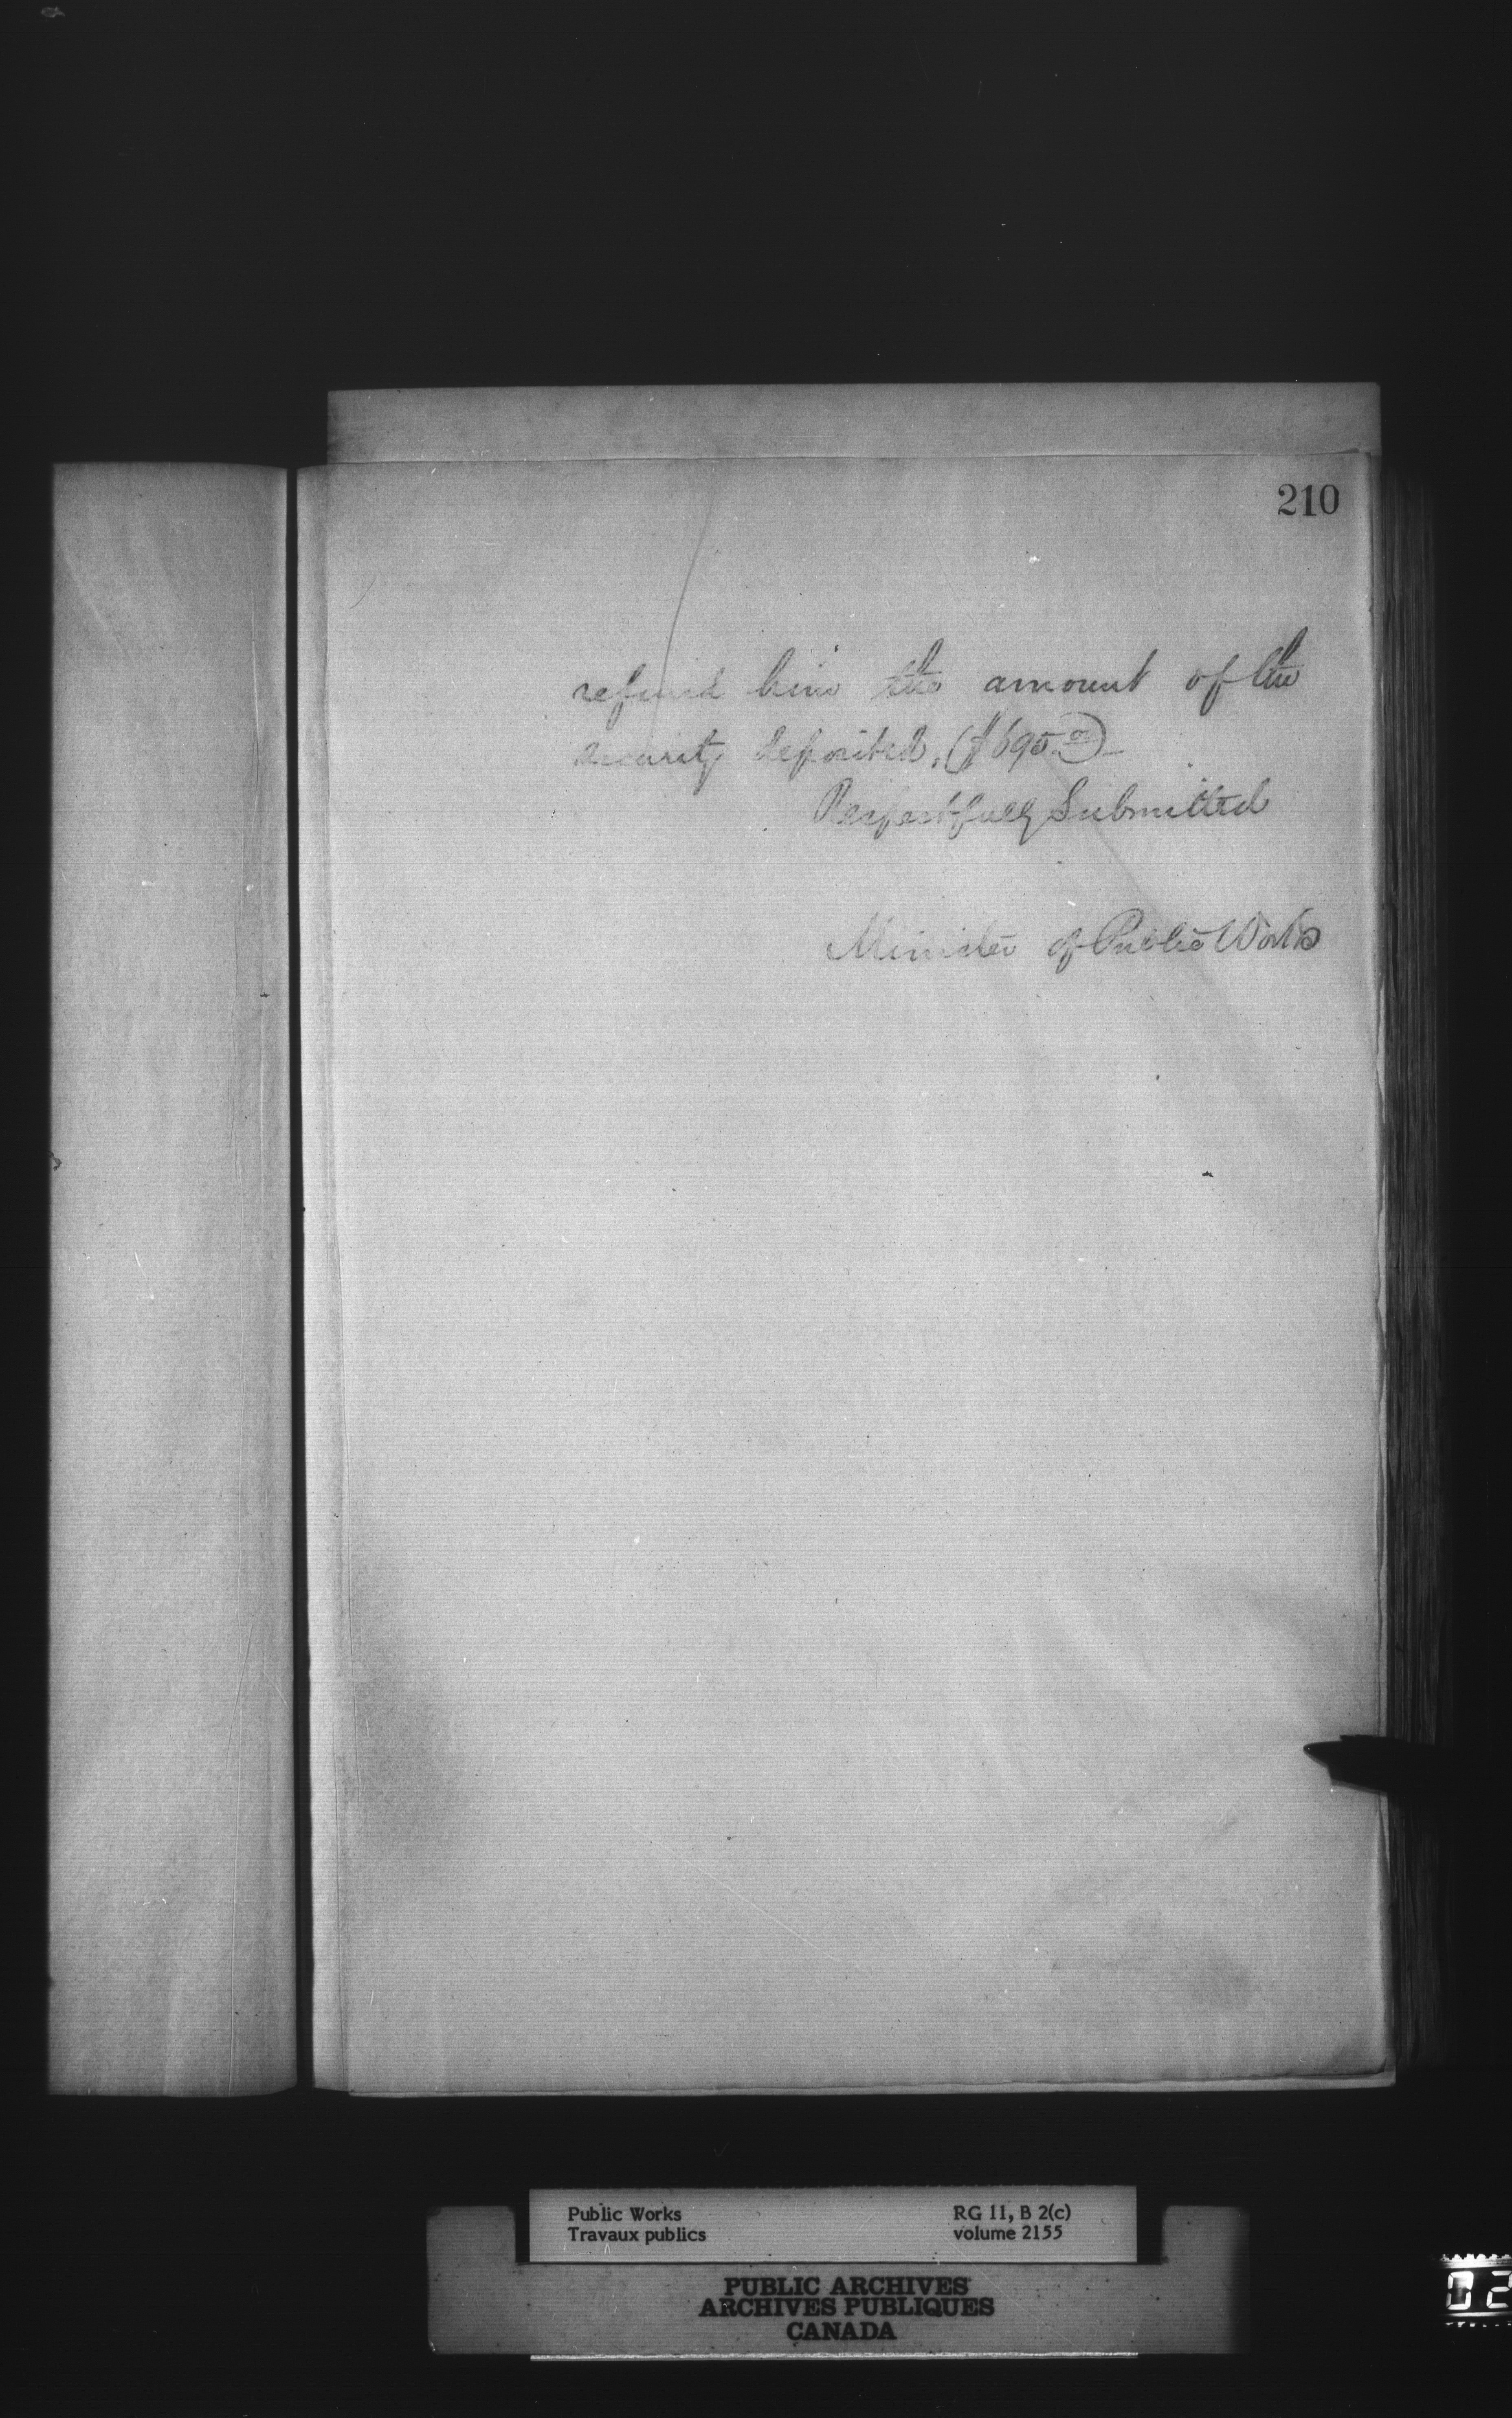 210
refund him the amount of the
security deposited, ($695.00)
Respectfully Submitted
Minister of Public Works
Public Works
Travaux publics
RG 11, B 2(c)
volume 2155
PUBLIC ARCHIVES
ARCHIVES PUBLIQUES
CANADA
02